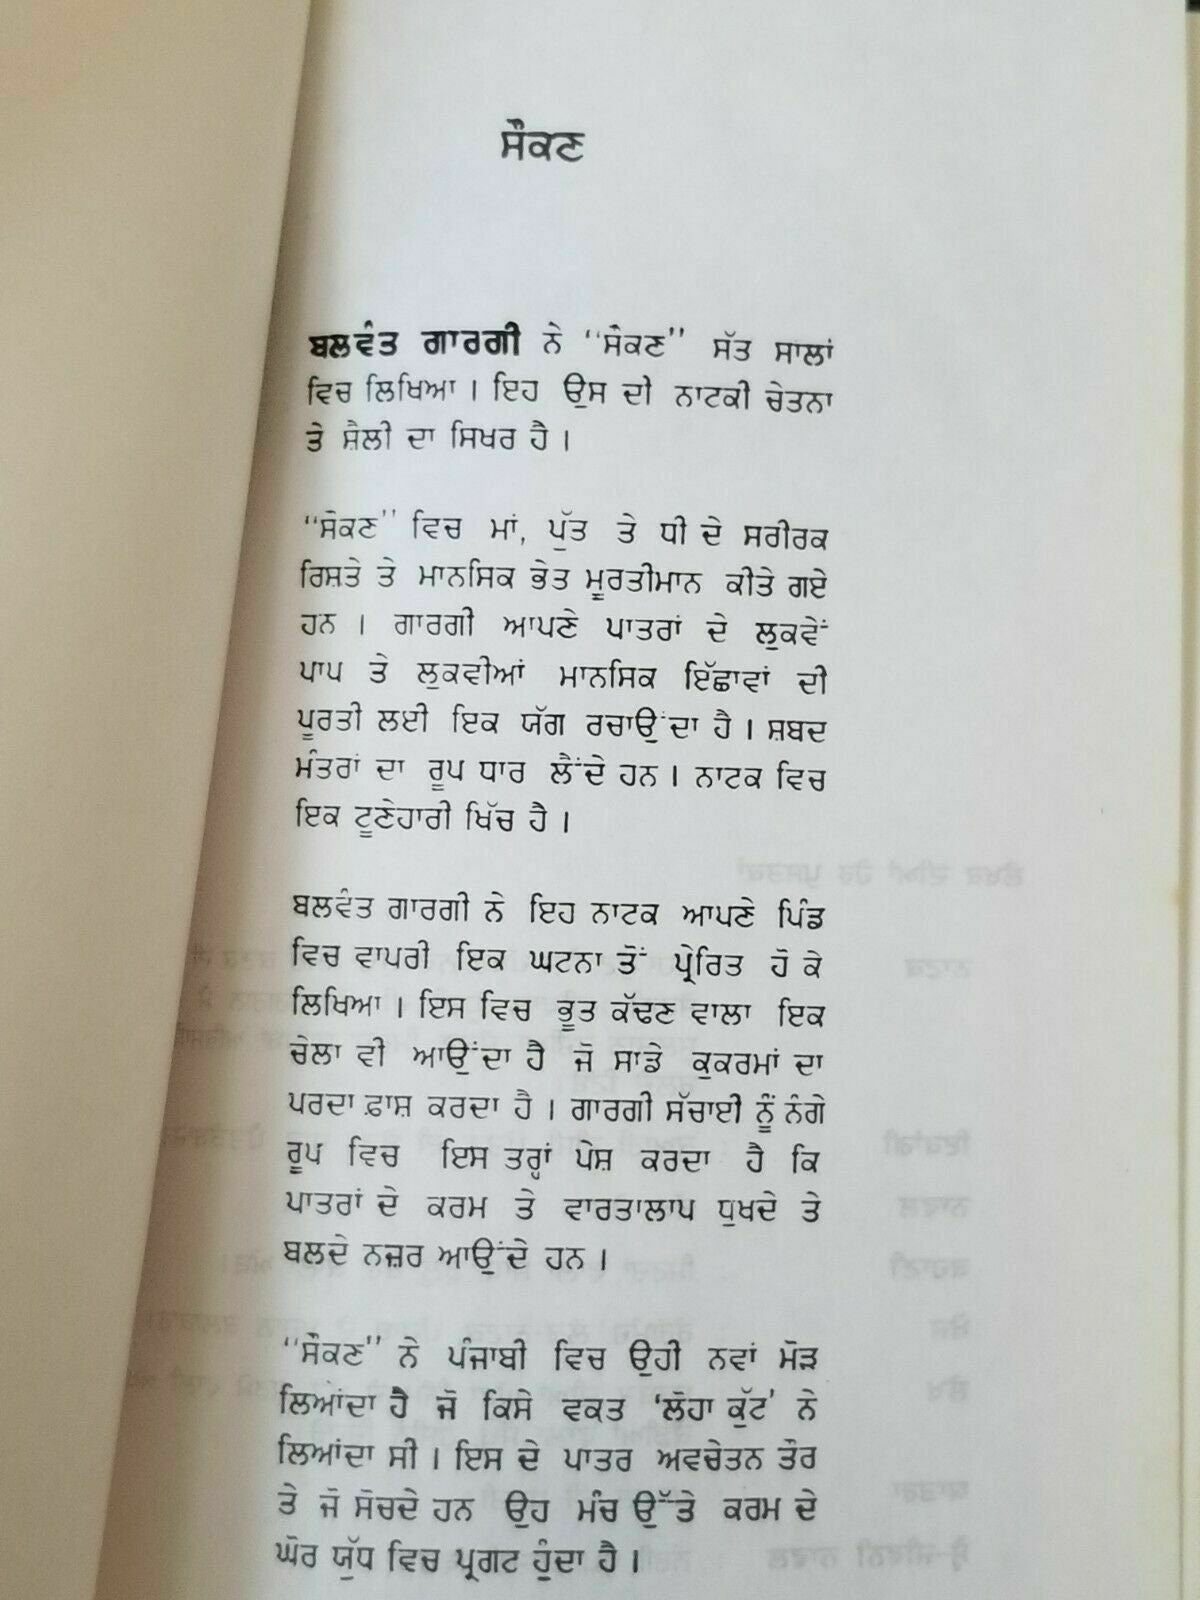 ਸੌਕਣ
ਬਲਵੰਤ ਗਾਰਗੀ ਨੇ "ਸੌਕਣ" ਸੱਤ ਸਾਲਾਂ
ਵਿਚ ਲਿਖਿਆ । ਇਹ ਉਸ ਦੀ ਨਾਟਕੀ ਚੇਤਨਾ
ਤੇ ਸ਼ੈਲੀ ਦਾ ਸਿਖਰ ਹੈ ।
"ਸੌਕਣ" ਵਿਚ ਮਾਂ, ਪੁੱਤ ਤੇ ਧੀ ਦੇ ਸਰੀਰਕ
ਰਿਸ਼ਤੇ ਤੇ ਮਾਨਸਿਕ ਭੇਤ ਮੂਰਤੀਮਾਨ ਕੀਤੇ ਗਏ
ਹਨ । ਗਾਰਗੀ ਆਪਣੇ ਪਾਤਰਾਂ ਦੇ ਲੁਕਵੇਂ
ਪਾਪ ਤੇ ਲੁਕਵੀਆਂ ਮਾਨਸਿਕ ਇੱਛਾਵਾਂ ਦੀ
ਪੂਰਤੀ ਲਈ ਇਕ ਯੱਗ ਰਚਾਉਂਦਾ ਹੈ । ਸ਼ਬਦ
ਮੰਤਰਾਂ ਦਾ ਰੂਪ ਧਾਰ ਲੈਂਦੇ ਹਨ । ਨਾਟਕ ਵਿਚ
ਇਕ ਟੂਣੇਹਾਰੀ ਖਿੱਚ ਹੈ ।
ਬਲਵੰਤ ਗਾਰਗੀ ਨੇ ਇਹ ਨਾਟਕ ਆਪਣੇ ਪਿੰਡ
ਵਿਚ ਵਾਪਰੀ ਇਕ ਘਟਨਾ ਤੋਂ ਪ੍ਰੇਰਿਤ ਹੋ ਕੇ
ਲਿਖਿਆ । ਇਸ ਵਿਚ ਭੂਤ ਕੱਢਣ ਵਾਲਾ ਇਕ
ਚੇਲਾ ਵੀ ਆਉਂਦਾ ਹੈ ਜੋ ਸਾਡੇ ਕੁਕਰਮਾਂ ਦਾ
ਪਰਦਾ ਫ਼ਾਸ਼ ਕਰਦਾ ਹੈ । ਗਾਰਗੀ ਸੱਚਾਈ ਨੂੰ ਨੰਗੇ
ਰੂਪ ਵਿਚ ਇਸ ਤਰ੍ਹਾਂ ਪੇਸ਼ ਕਰਦਾ ਹੈ ਕਿ
ਪਾਤਰਾਂ ਦੇ ਕਰਮ ਤੇ ਵਾਰਤਾਲਾਪ ਧੁਖਦੇ ਤੇ
ਬਲਦੇ ਨਜ਼ਰ ਆਉਂਦੇ ਹਨ ।
"ਸੌਕਣ" ਨੇ ਪੰਜਾਬੀ ਵਿਚ ਉਹੀ ਨਵਾਂ ਮੋੜ
ਲਿਆਂਦਾ ਹੈ ਜੋ ਕਿਸੇ ਵਕਤ 'ਲੋਹਾ ਕੁੱਟ' ਨੇ
ਲਿਆਂਦਾ ਸੀ । ਇਸ ਦੇ ਪਾਤਰ ਅਵਚੇਤਨ ਤੌਰ
ਤੇ ਜੋ ਸੋਚਦੇ ਹਨ ਉਹ ਮੰਚ ਉੱਤੇ ਕਰਮ ਦੇ
ਘੋਰ ਯੁੱਧ ਵਿਚ ਪ੍ਰਗਟ ਹੁੰਦਾ ਹੈ ।